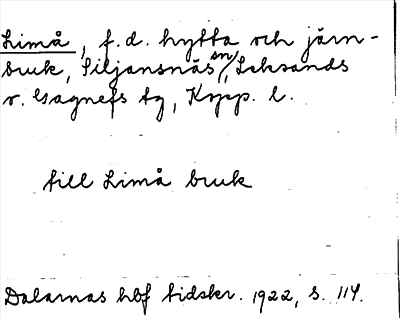 Limå, f.d. hytta och järn-
bruk, Siljansnäs sn, Leksands
o. Gagnefs tg, Kopp. l.
till Limå bruk
Dalarnas hbf tidskr. 1922, s. 114.